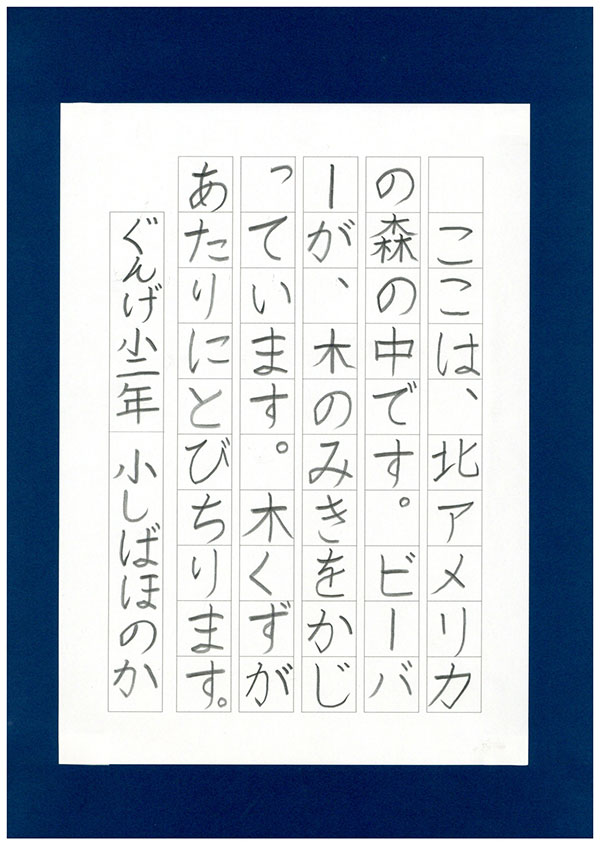 ここは、北アメリカ
の森の中です。ビーバ
ーが、木のみきをかじ
っています。木くずが
あたりにとびちります。
ぐんげ小二年　小しばほのか